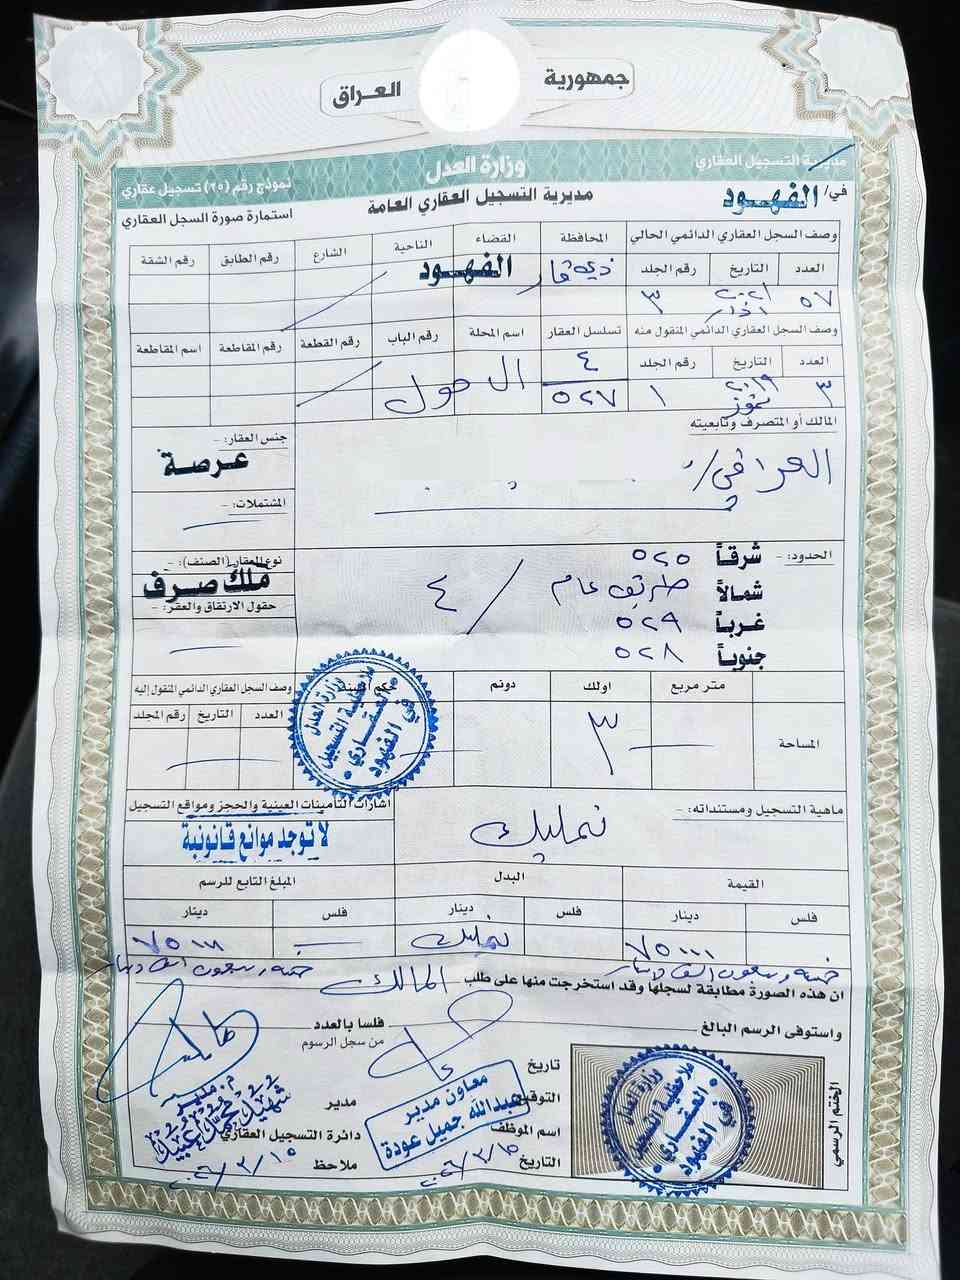 جمهورية
العراق
مديرية التسجيل العقاري
وزارة العدل
نموذج رقم (٢٥) تسجيل عقاري
في/ الفهود
مديرية التسجيل العقاري العامة
استمارة صورة السجل العقاري
وصف السجل العقاري الدائمي الحالي
المحافظة
القضاء
الناحية
الشارع
رقم الطابق
رقم الشقة
العدد
التاريخ
رقم الجلد
ذي قار
الفهود
٥٧
٢٠٢١
آذار
٣
وصف السجل العقاري الدائمي المنقول منه
تسلسل العقار
اسم المحلة
رقم الباب
رقم القطعة
رقم المقاطعة
اسم المقاطعة
العدد
التاريخ
رقم الجلد
٤
٥٢٧
ال حول
٣
٢٠١٩
تموز
١
المالك أو المتصرف وتابعيته
جنس العقار: -
عرصة
العراقي/
المشتملات: -
الحدود: -
شرقاً ٥٢٥
شمالاً طريق عام
غرباً ٥٢٩
جنوباً ٥٢٨
٤
نوع العقار (الصنف): -
ملك صرف
حقول الارتفاق والعقر: -
متر مربع
اولك
دونم
وصف السجل العقاري الدائمي المنقول إليه
العدد
التاريخ
رقم المجلد
المساحة
٣
وزارة العدل
ملاحظية التسجيل
العقاري
في الفهود
ماهية التسجيل ومستنداته: -
تمليك
اشارات التأمينات العينية والحجز ومواقع التسجيل
لا توجد موانع قانونية
القيمة
البدل
المبلغ التابع للرسم
فلس
دينار
فلس
دينار
فلس
دينار
٧٥٠٠٠
تمليك
٧٥٠٠٠
خمسة وسبعون الف دينار
خمسة وسبعون الف دينار
ان هذه الصورة مطابقة لسجلها وقد استخرجت منها على طلب المالك
واستوفى الرسم البالغ
فلسا بالعدد
من سجل الرسوم
تاريخ
التوقيع
اسم الموظف
التاريخ
معاون مدير
عبدالله جميل عودة
مدير
دائرة التسجيل العقاري
ملاحظ
م. مدير
الختم الرسمي
وزارة العدل
ملاحظية التسجيل
العقاري
في الفهود